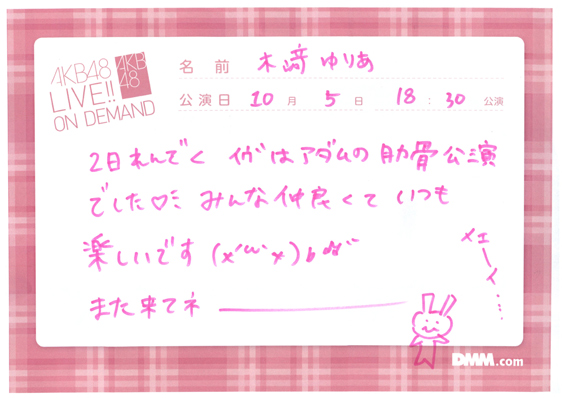 AKB48
LIVE!!
ON DEMAND
AKB
48
名 前 木﨑ゆりあ
公演日 10 月 5 日 18 : 30 公演
2日れんぞく イヴはアダムの肋骨公演
でした♡ミ みんな仲良くて いつも
楽しいです (x'ω'x)b
また来てネ
メェーイ...
DMM.com